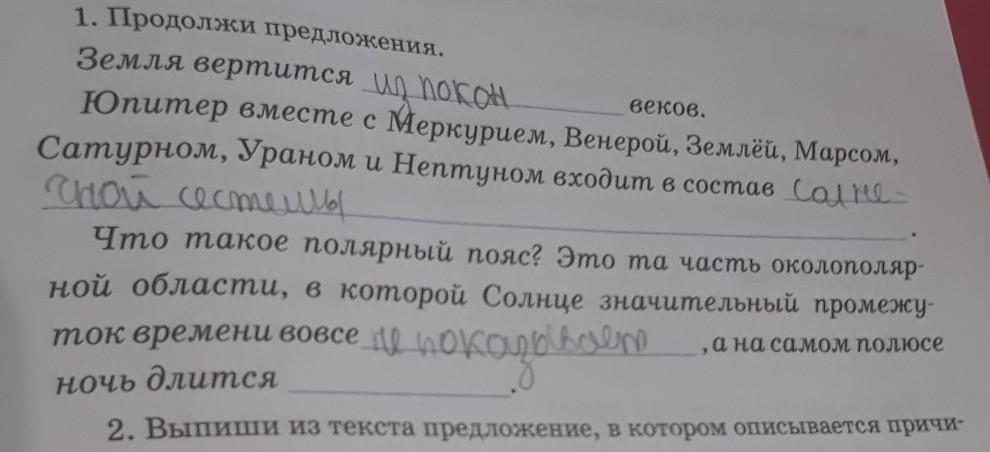 1. Продолжи предложения.
Земля вертится испокон веков.
Юпитер вместе с Меркурием, Венерой, Землёй, Марсом,
Сатурном, Ураном и Нептуном входит в состав солне-
чной сестемы.
Что такое полярный пояс? Это та часть околополяр-
ной области, в которой Солнце значительный промежу-
ток времени вовсе не показывает, а на самом полюсе
ночь длится .
2. Выпиши из текста предложение, в котором описывается причи-